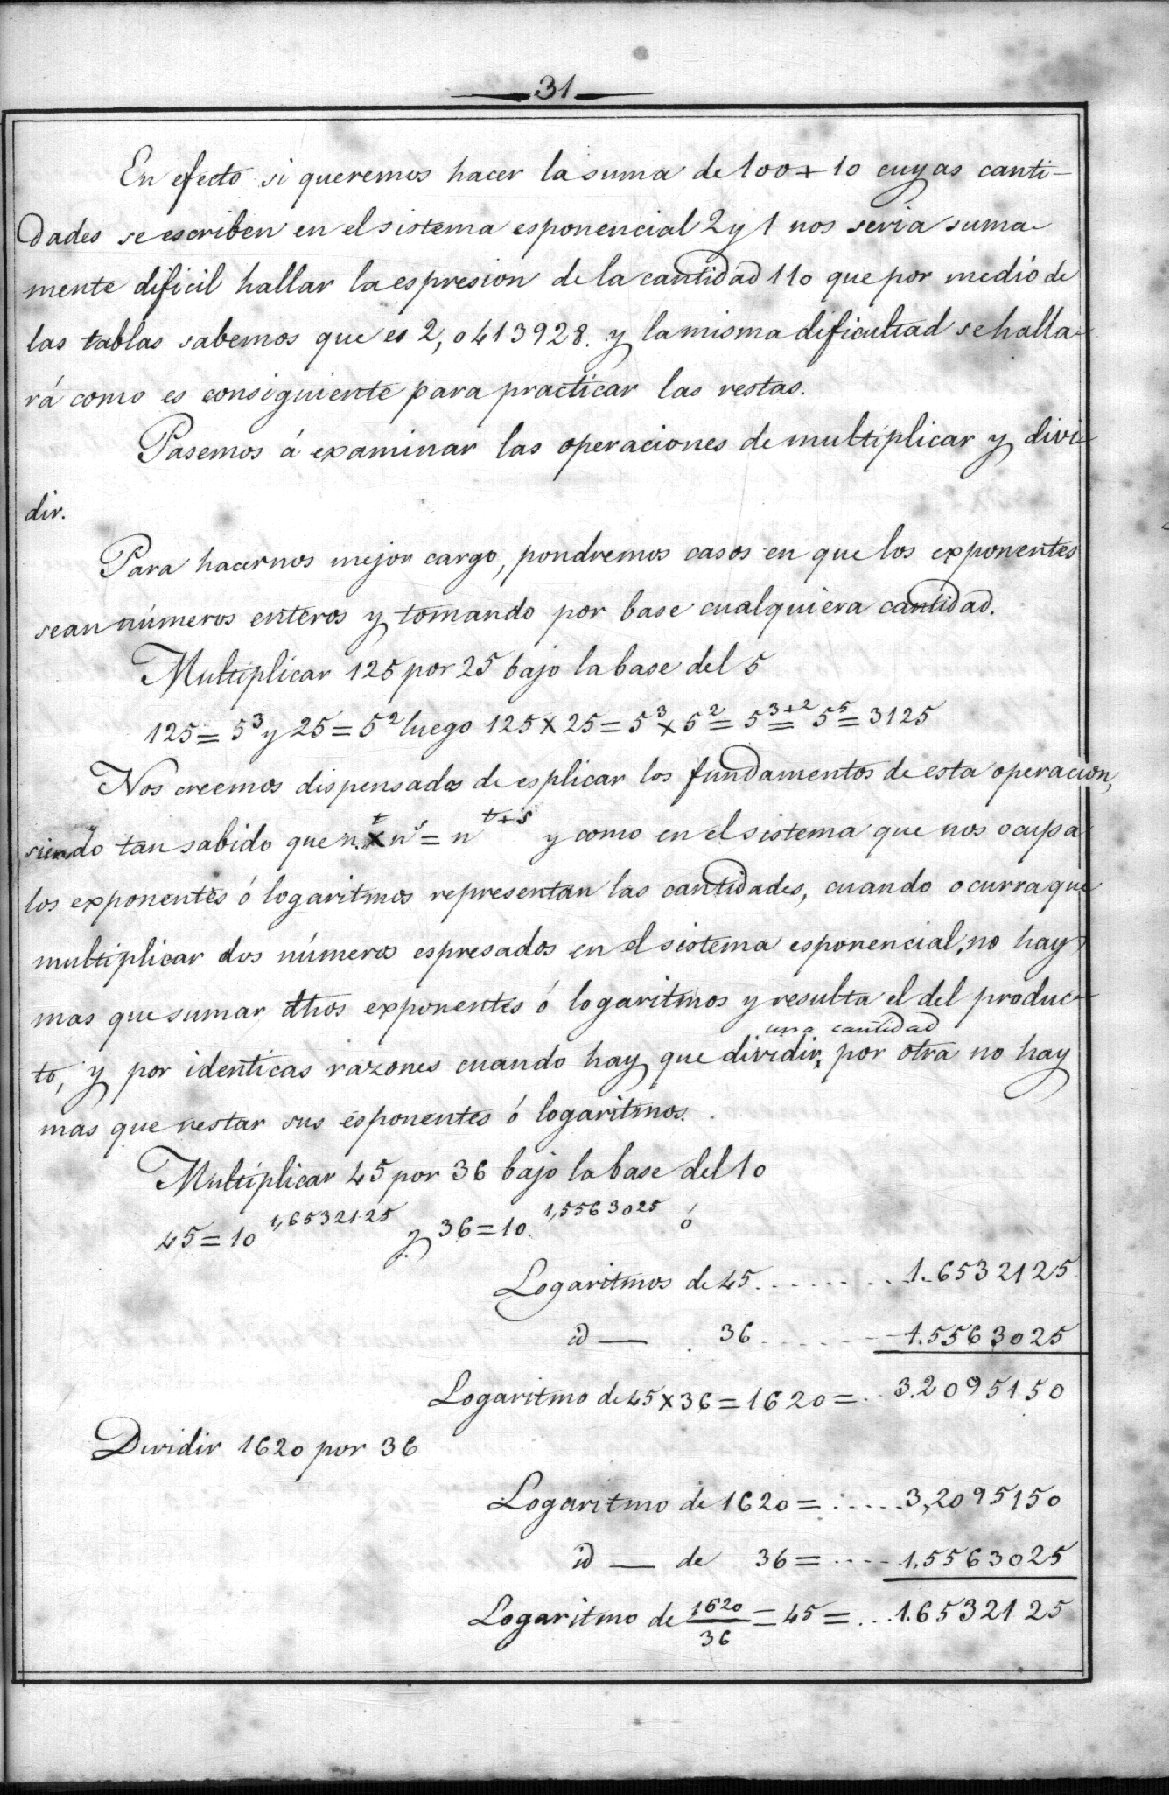 31
En efecto si queremos hacer la suma de 100+10 cuyas canti-
dades se escriben en el sistema esponencial 2 y 1 nos seria suma-
mente dificil hallar la espresion de la cantidad 110 que por medio de
las tablas sabemos que es 2,0413928. y la misma dificultad se halla-
rá como es consiguiente para practicar las restas.
Pasemos á examinar las operaciones de multiplicar y divi-
dir.
Para hacernos mejor cargo, pondremos casos en que los exponentes
sean números enteros y tomando por base cualquiera cantidad.
Multiplicar 125 por 25 bajo la base del 5
125 = 5³ y 25 = 5² luego 125 × 25 = 5³ × 5² = 5³⁺² = 5⁵ = 3125
Nos creemos dispensados de esplicar los fundamentos de esta operacion,
siendo tan sabido que nᵗ × nˢ = nᵗ⁺ˢ y como en el sistema que nos ocupa
los exponentes ó logaritmos representan las cantidades, cuando ocurra que
multiplicar dos números espresados en el sistema esponencial, no hay
mas que sumar dhos exponentes ó logaritmos y resulta el del produc-
una cantidad
to, y por identicas razones cuando hay que dividir, por otra no hay
mas que restar sus esponentes ó logaritmos.
Multiplicar 45 por 36 bajo la base del 10
45 = 10^1,6532125 y 36 = 10^1,5563025 ó
Logaritmos de 45......... 1.6532125
id — 36....... 1.5563025
Logaritmo de 45 × 36 = 1620 = .. 3.2095150
Dividir 1620 por 36
Logaritmo de 1620 = ..... 3,2095150
id — de 36 = .... 1.5563025
Logaritmo de 1620/36 = 45 = ... 1.6532125